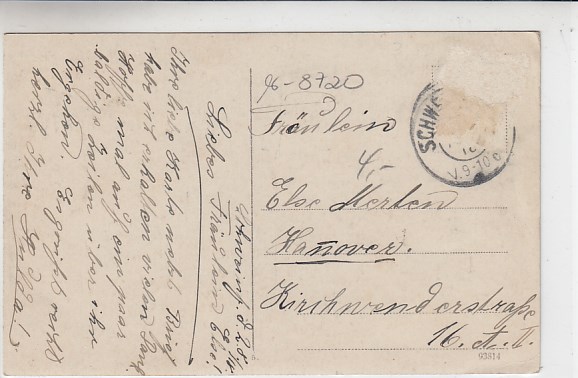 96-8720
Fräulein
4,-
Else Merten
Hannover.
Kirchwenderstraße
16. A. II.
93814
SCHWE
V.9-10
Schweinf. d. 2.6.
Liebes Fräulein Else!
Ihre liebe Karte nebst Brief
habe ich erhalten vielen Dank
Hoffe mal auf ein paar
baldige Zeilen über ihr
Ergehen. Es grüßt recht
herzl. Ihre Hulda!